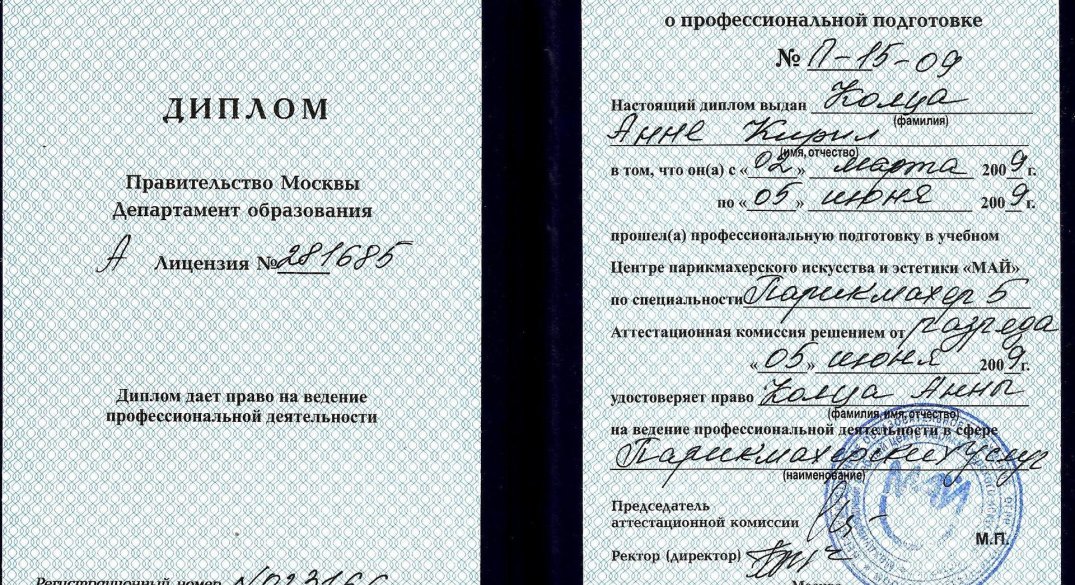 ДИПЛОМ
Правительство Москвы
Департамент образования
А Лицензия № 281685
Диплом дает право на ведение
профессиональной деятельности
Регистрационный номер
о профессиональной подготовке
№ П-15-09
Настоящий диплом выдан Колца
(фамилия)
Анне Кирил
(имя, отчество)
в том, что он(а) с «02» марта 2009 г.
по «05» июня 2009 г.
прошел(а) профессиональную подготовку в учебном
Центре парикмахерского искусства и эстетики «МАЙ»
по специальности Парикмахер 5
Аттестационная комиссия решением от разряда
«05» июня 2009 г.
удостоверяет право Колца Анны
(фамилия, имя, отчество)
на ведение профессиональной деятельности в сфере
Парикмахерских услуг
(наименование)
Председатель
аттестационной комиссии
МАЙ
М.П.
Ректор (директор)
Москва